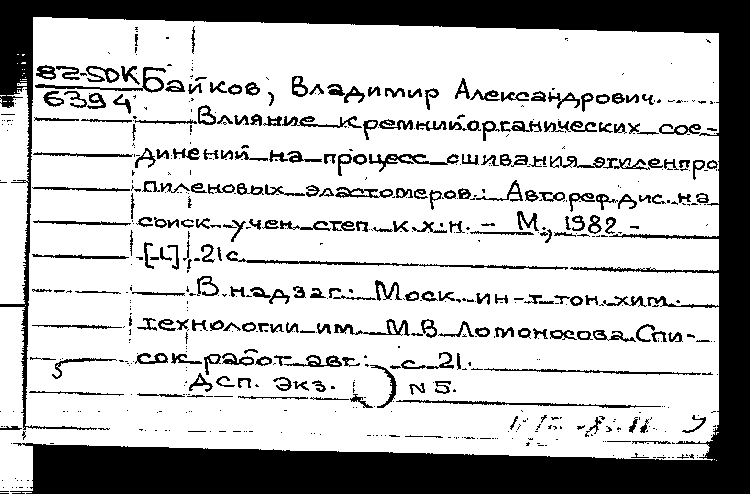 82-SDK Байков, Владимир Александрович.
6394
Влияние кремнийорганических сое-
динений на процесс сшивания этиленпро
пиленовых эластомеров: Автореф. дис. на
соиск. учен. степ. к.х.н. - М., 1982.-
[1], 21 с.
В надзаг.: Моск. ин-т тон. хим.
технологии им. М.В. Ломоносова. Спи-
сок работ авт.: с. 21.
5
ДСП. Экз. N 5.